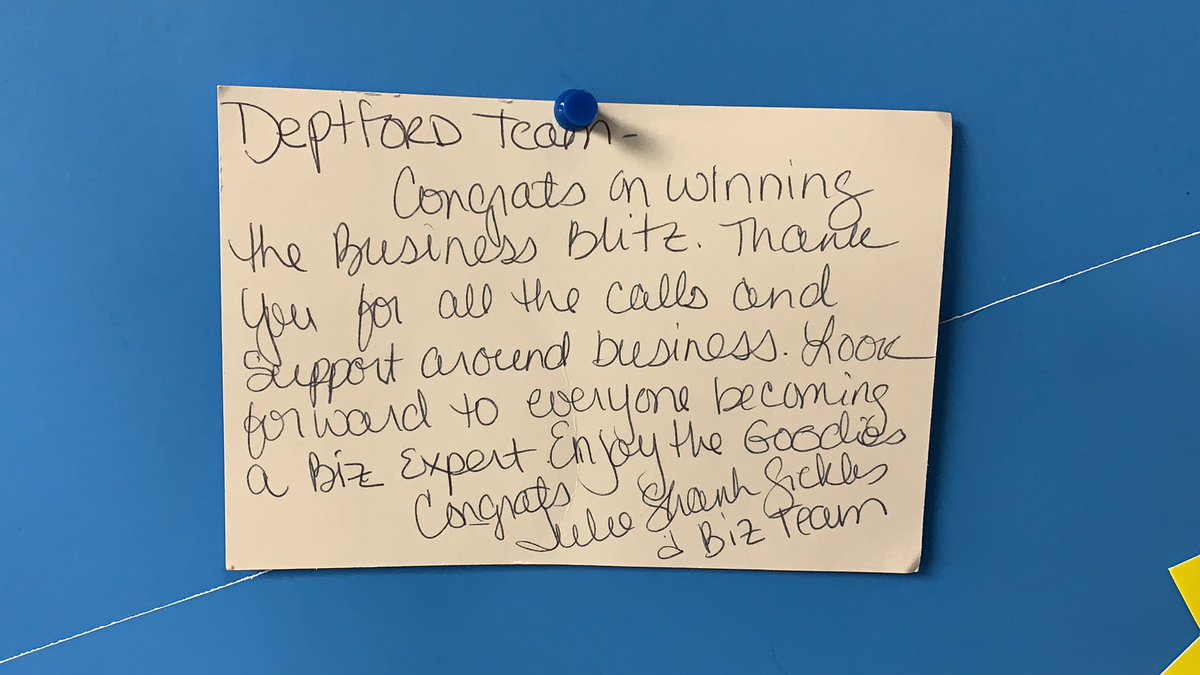 Deptford Team -
Congrats on winning
the Business Blitz. Thank
you for all the calls and
Support around business. Look
forward to everyone becoming
a Biz Expert Enjoy the Goodies
Congrats
Julie Shank Sickles
& Biz Team